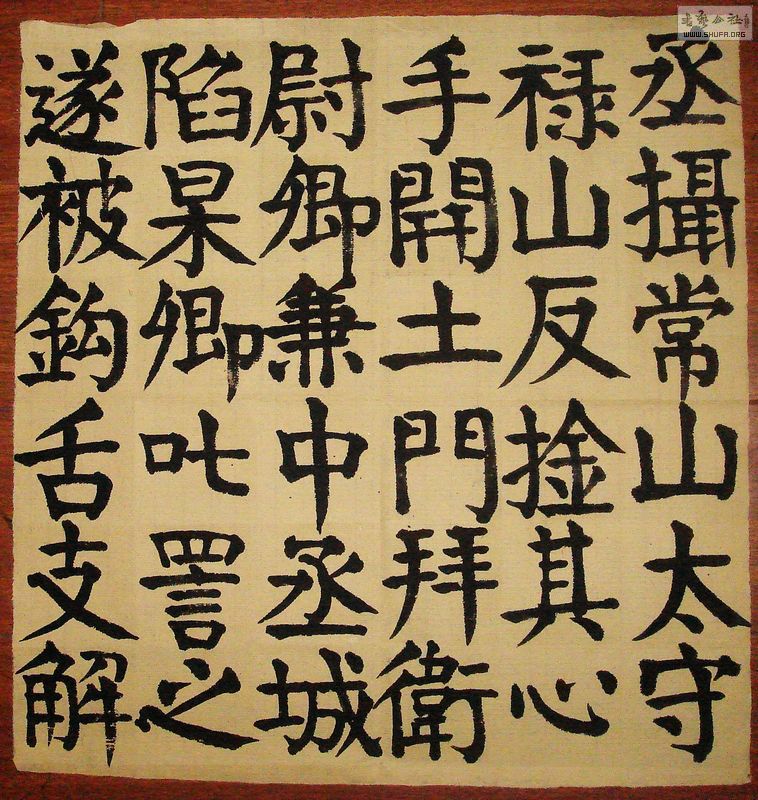 丞攝常山太守
禄山反捦其心
手開土門拜衛
尉卿兼中丞城
陷杲卿叱詈之
遂被鉤舌支解
WWW.SHUFA.ORG